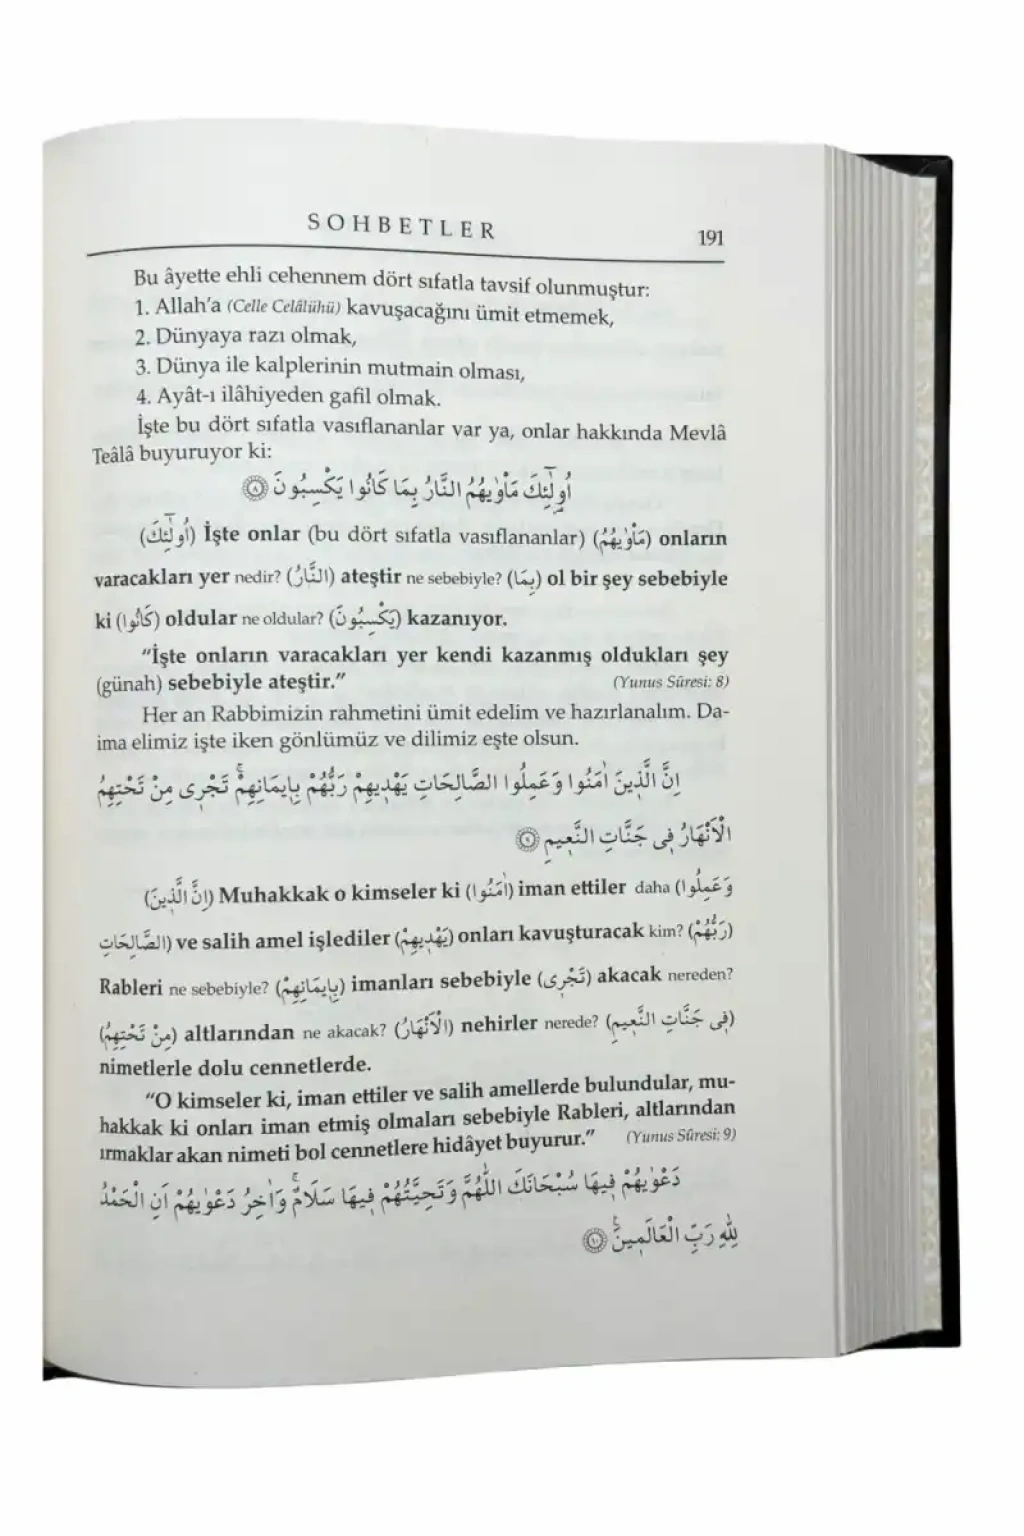 SOHBETLER
191
Bu âyette ehli cehennem dört sıfatla tavsif olunmuştur:
1. Allah'a (Celle Celâlühü) kavuşacağını ümit etmemek,
2. Dünyaya razı olmak,
3. Dünya ile kalplerinin mutmain olması,
4. Ayât-ı ilâhiyeden gafil olmak.
İşte bu dört sıfatla vasıflananlar var ya, onlar hakkında Mevlâ
Teâlâ buyuruyor ki:
اُو۬لٰٓئِكَ مَأْوٰيهُمُ النَّارُ بِمَا كَانُوا يَكْسِبُونَ ﴿٨﴾
(اُو۬لٰٓئِكَ) İşte onlar (bu dört sıfatla vasıflananlar) (مَأْوٰيهُمُ) onların
varacakları yer nedir? (النَّارُ) ateştir ne sebebiyle? (بِمَا) ol bir şey sebebiyle
ki (كَانُوا) oldular ne oldular? (يَكْسِبُونَ) kazanıyor.
"İşte onların varacakları yer kendi kazanmış oldukları şey
(günah) sebebiyle ateştir." (Yunus Sûresi: 8)
Her an Rabbimizin rahmetini ümit edelim ve hazırlanalım. Da-
ima elimiz işte iken gönlümüz ve dilimiz eşte olsun.
اِنَّ الَّذِينَ اٰمَنُوا وَعَمِلُوا الصَّالِحَاتِ يَهْدِيهِمْ رَبُّهُمْ بِاِيمَانِهِمْۚ تَجْرِى مِنْ تَحْتِهِمُ
الْاَنْهَارُ فِى جَنَّاتِ النَّعِيمِ ﴿٩﴾
(اِنَّ الَّذِينَ) Muhakkak o kimseler ki (اٰمَنُوا) iman ettiler daha (وَعَمِلُوا
الصَّالِحَاتِ) ve salih amel işlediler (يَهْدِيهِمْ) onları kavuşturacak kim? (رَبُّهُمْ)
Rableri ne sebebiyle? (بِاِيمَانِهِمْ) imanları sebebiyle (تَجْرِى) akacak nereden?
(مِنْ تَحْتِهِمُ) altlarından ne akacak? (الْاَنْهَارُ) nehirler nerede? (فِى جَنَّاتِ النَّعِيمِ)
nimetlerle dolu cennetlerde.
"O kimseler ki, iman ettiler ve salih amellerde bulundular, mu-
hakkak ki onları iman etmiş olmaları sebebiyle Rableri, altlarından
ırmaklar akan nimeti bol cennetlere hidâyet buyurur." (Yunus Sûresi: 9)
دَعْوٰيهُمْ فِيهَا سُبْحَانَكَ اللّٰهُمَّ وَتَحِيَّتُهُمْ فِيهَا سَلَامٌۚ وَاٰخِرُ دَعْوٰيهُمْ اَنِ الْحَمْدُ
لِلّٰهِ رَبِّ الْعَالَمِينَ۟ ﴿١٠﴾